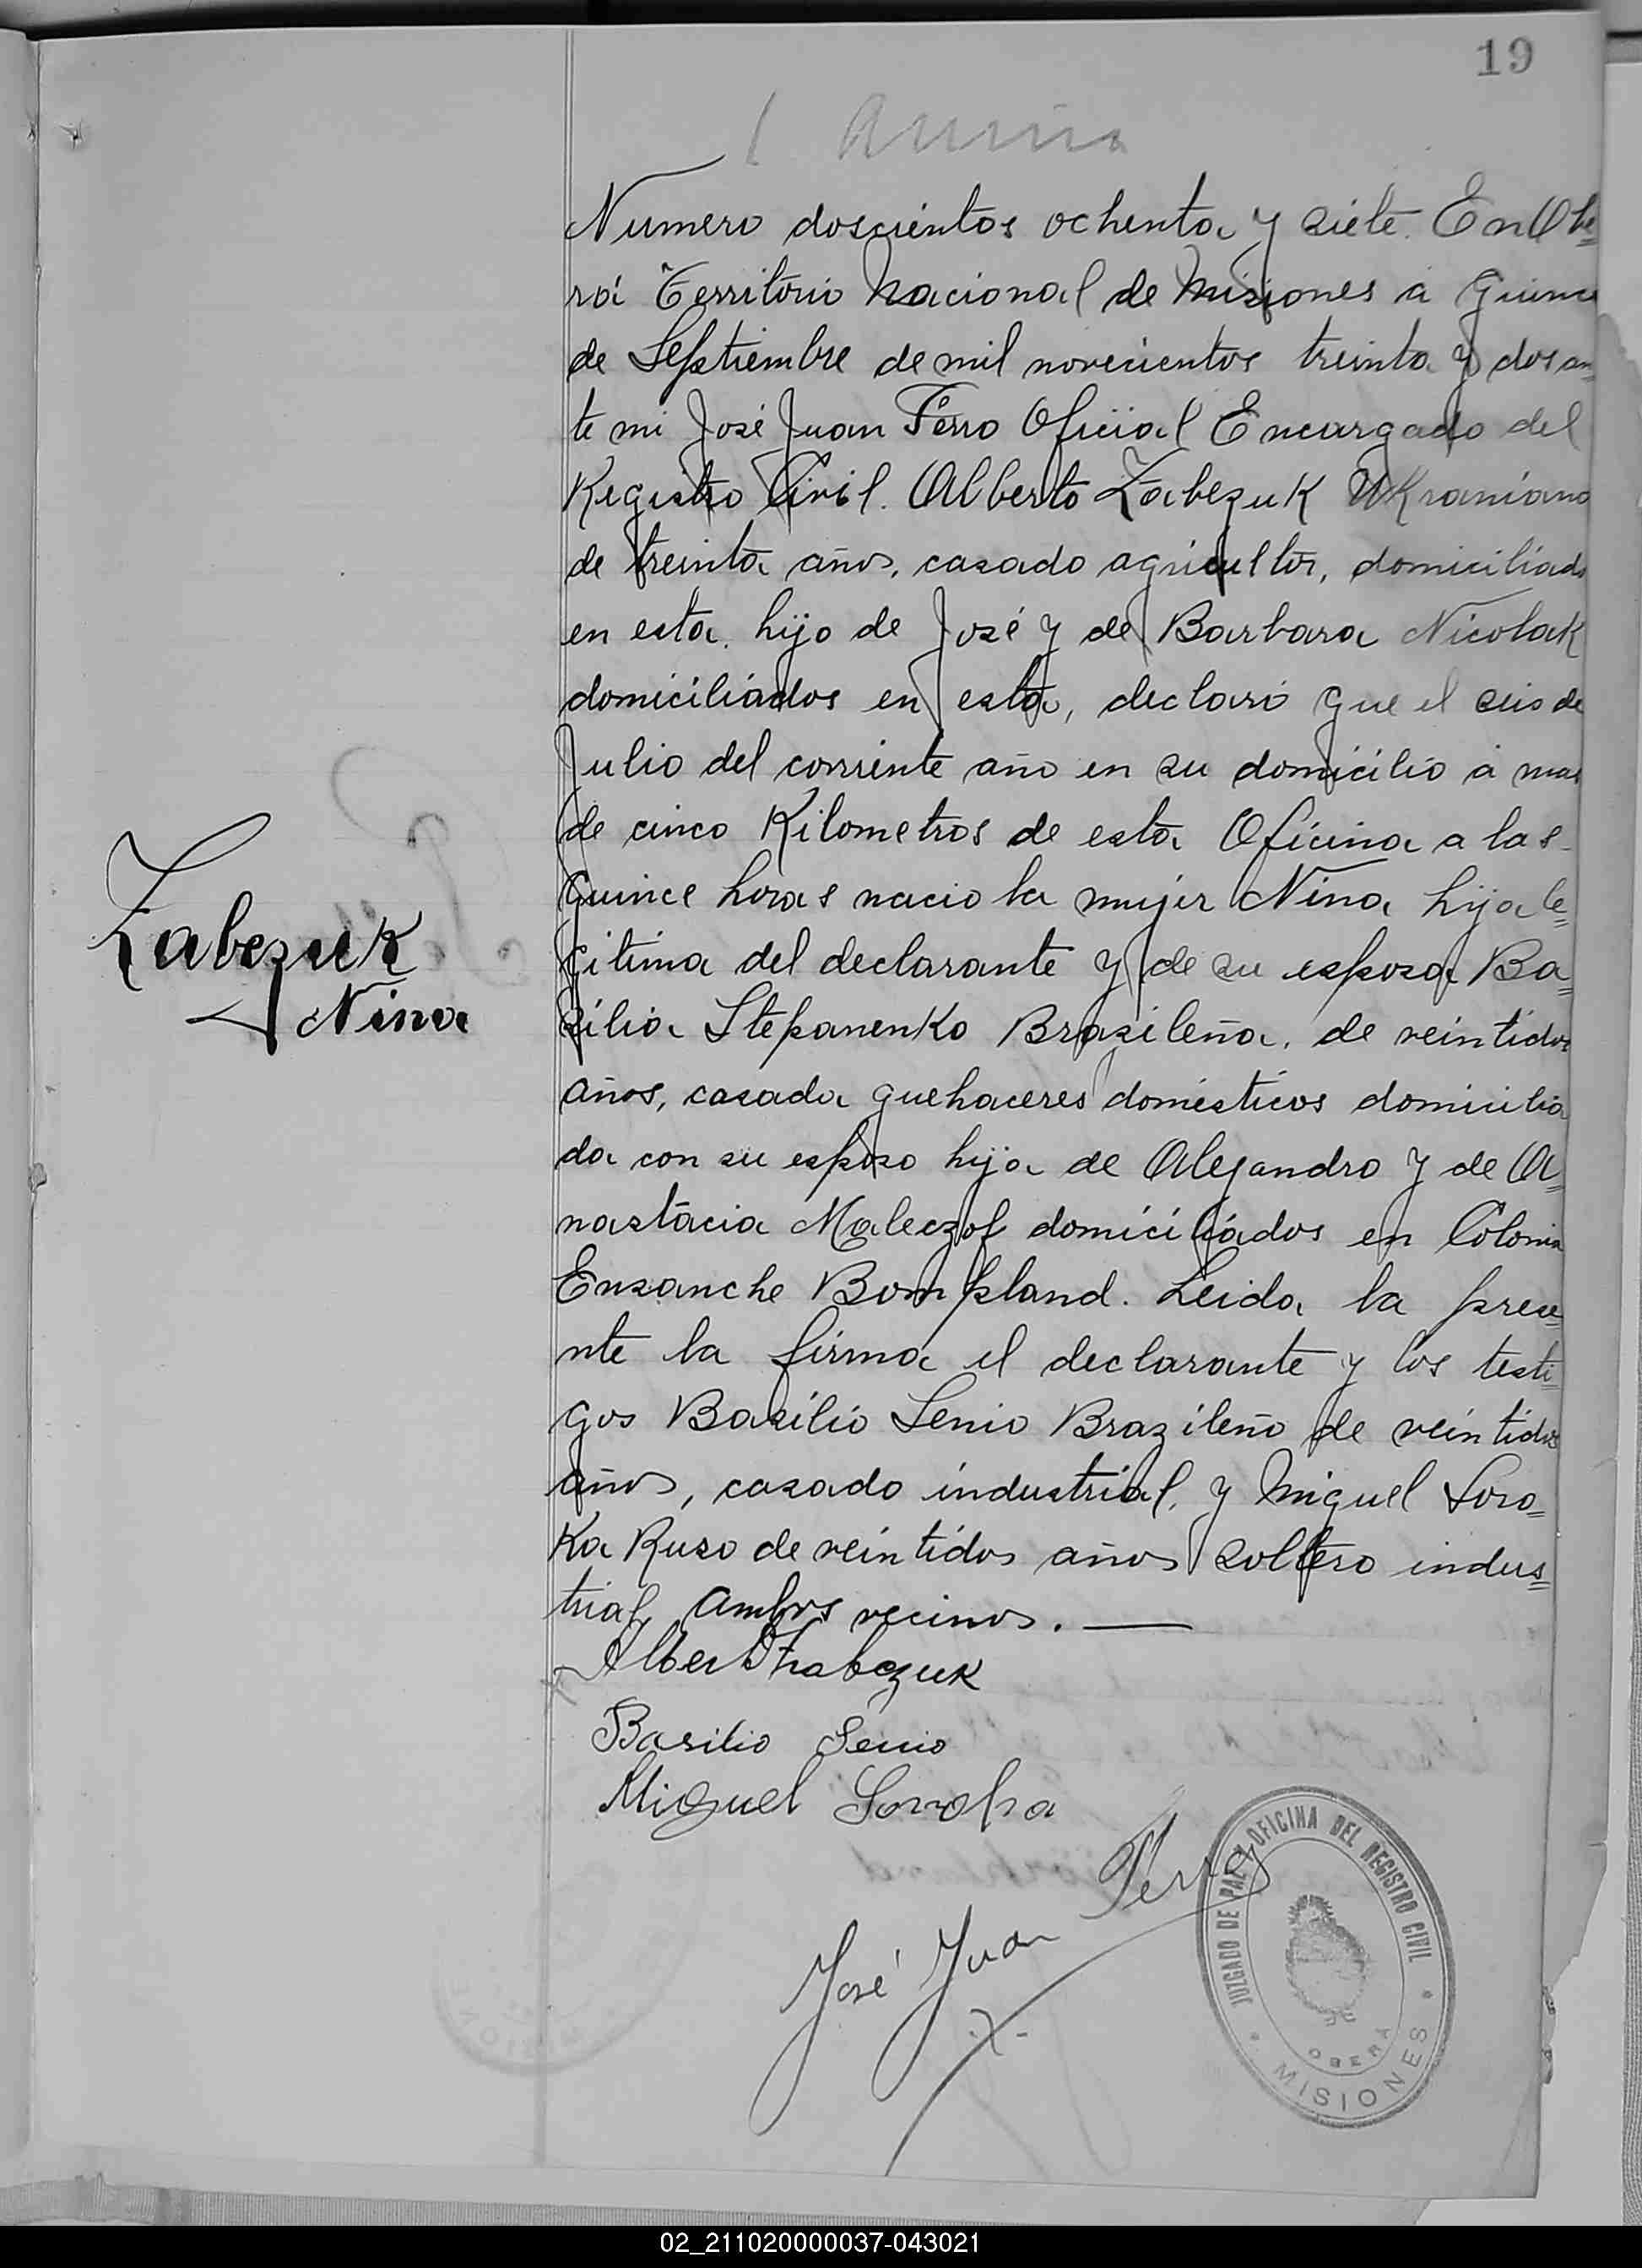 19
Numero doscientos ochenta y siete. En Obe=
rá Territorio Nacional de Misiones a quince
de Septiembre de mil novecientos treinta y dos an=
te mi José Juan Ferro Oficial Encargado del
Registro Civil. Alberto Zabezuk Ukraniano
de treinta años, casado agricultor, domiciliado
en esta. hijo de José y de Barbara Nicolak
domiciliados en esta, declaró que el seis de
Julio del corriente año en su domicilio a mas
de cinco Kilometros de esta Oficina a las
quince horas nacio la mujer Nina, hija le=
gitima del declarante y de su esposa Ba=
silia Stepanenko Brasileña, de veintidos
años, casada quehaceres domésticos domicilia
da con su esposo hija de Alejandro y de A=
nastacia Maleczof domiciliados en Colonia
Ensanche Bompland. Leida la prese=
nte la firma el declarante y los testi=
gos Basilio Senio Brazileño de veintidos
años, casado industrial, y Miguel Soro=
Ka Ruso de veintidos años soltero indus=
trial, ambos vecinos.
Zabezuk
Nina
Albert Zabczuk
Basilio Senio
Miguel Soroka
José Juan Ferro
JUZGADO DE PAZ Y OFICINA DEL REGISTRO CIVIL
OBERÁ
MISIONES
02_211020000037-043021